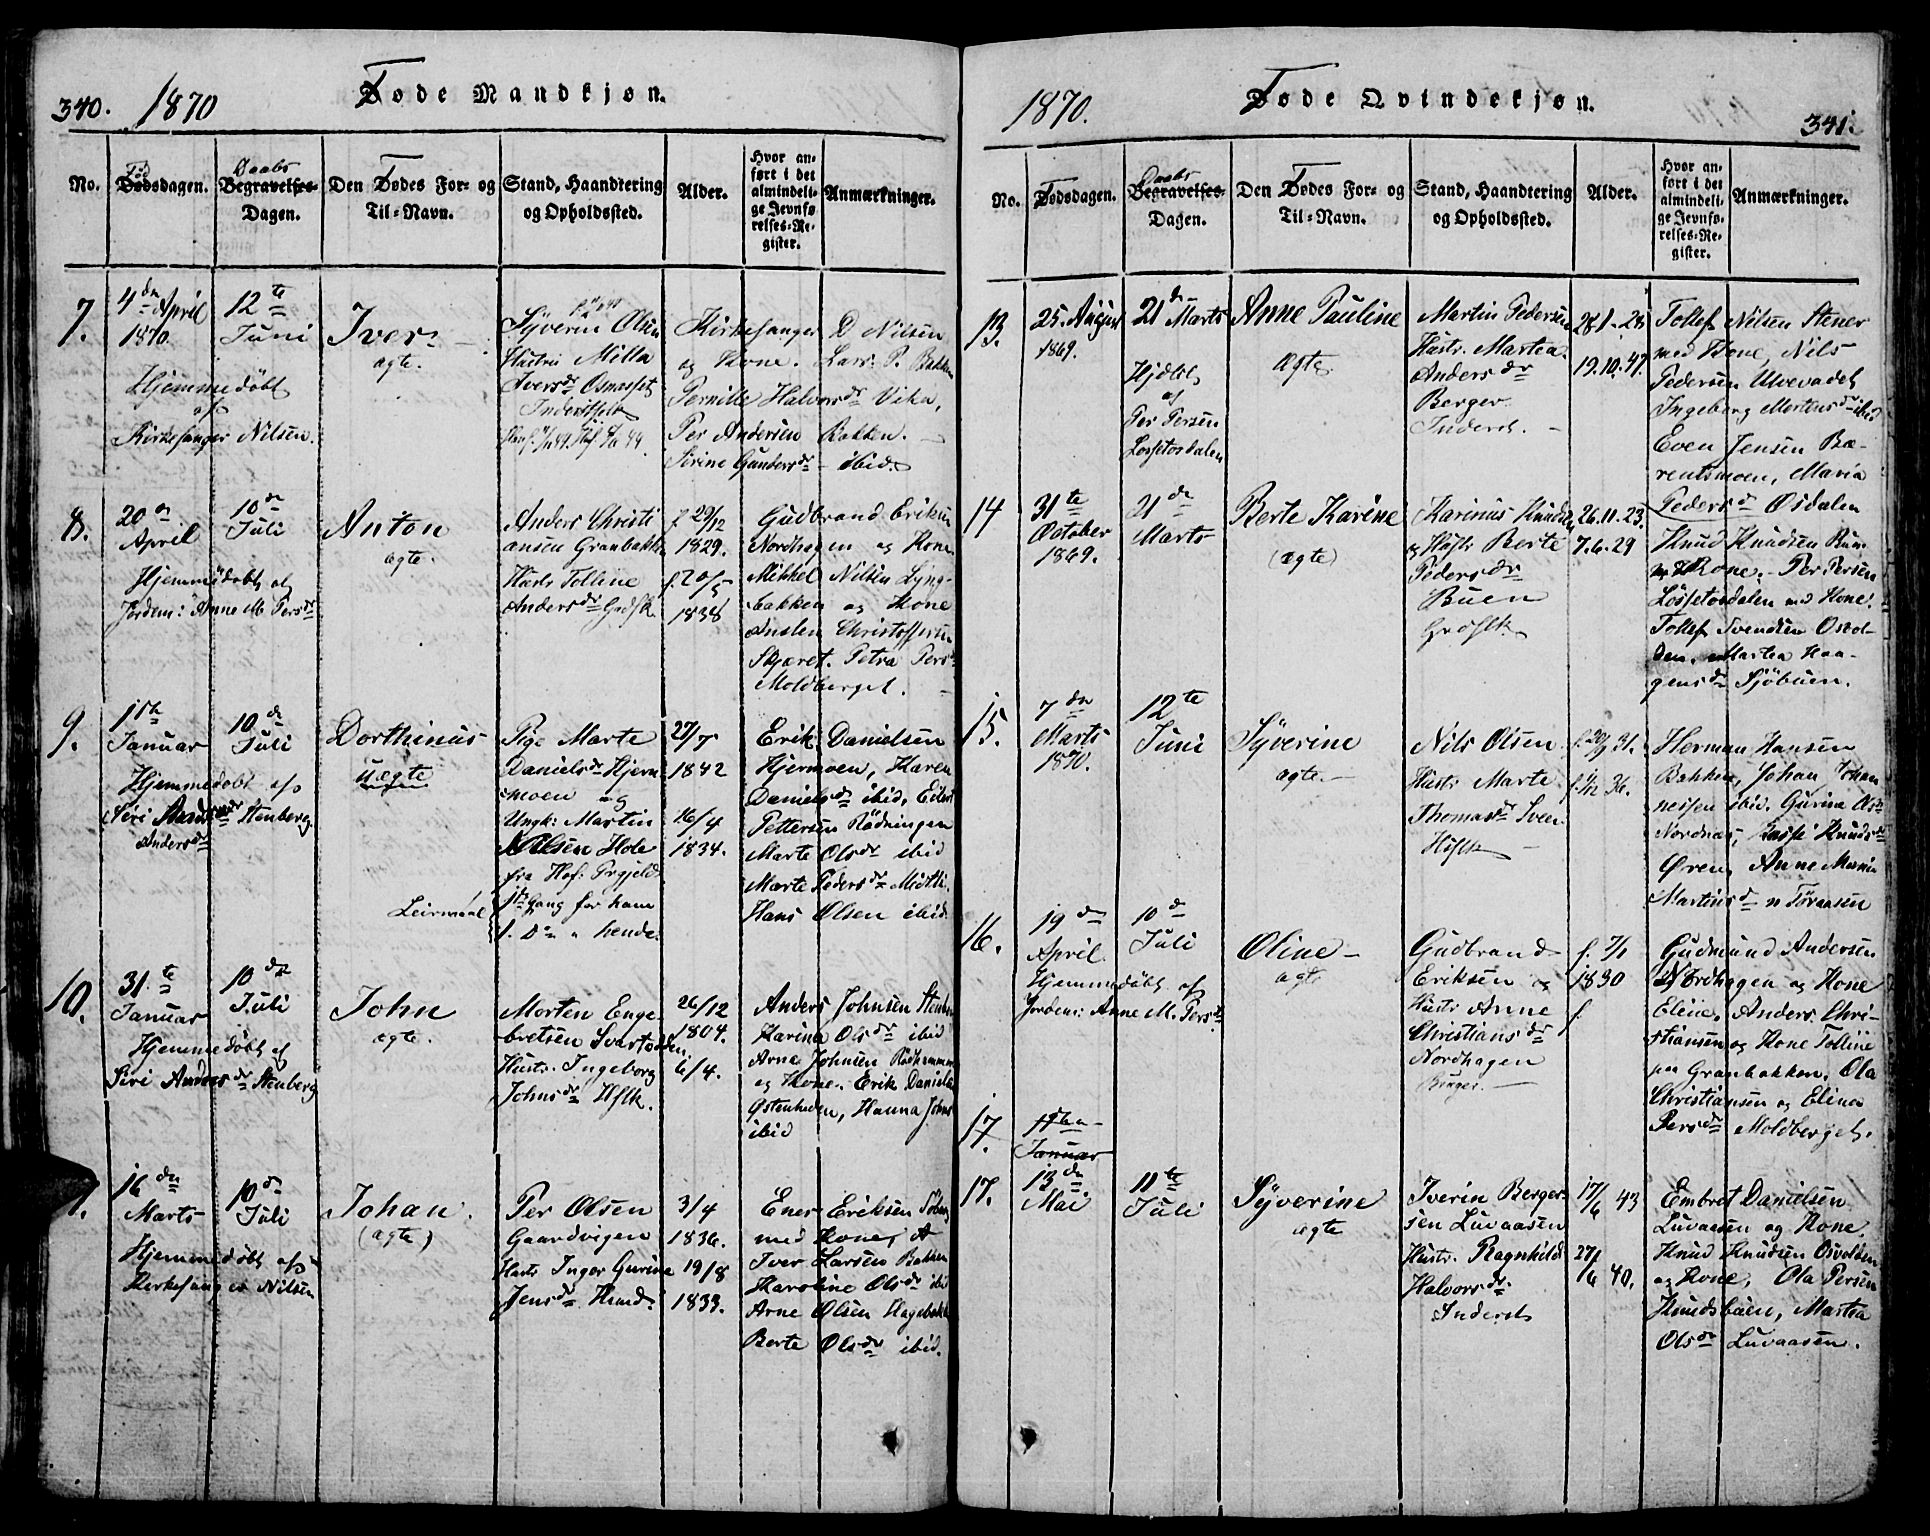 340. 1870 Føde Mandkjøn.
No.
Fød
Dødsdagen.
Daabs
Begravelses-
Dagen.
Den Fødes For- og
Til-Navn.
Stand, Haandtering
og Opholdssted.
Alder.
Hvor an-
ført i det
almindeli-
ge Jevnfø-
relses-Re-
gister.
Anmærkninger.
7.
4de April
1870.
Hjemmedøbt
af
Kirkesanger Nilsen.
12te
Juni
Iver
ægte.
Syverin Olsen
Hustru Milla
Iversdr Osmosset
Inderst
Kirkesanger D Nilsen
og Kone. Lars P. Bakken
Pernille Halvorsdr Vika,
Per Andersen Bakken.
Sirine Gundersdr ibid.
8.
20de
April
Hjemmedøbt af
Jordem: Anne M Persdr
10de
Juli
Anton
ægte.
Anders Christi
ansen Granbakke
Hustr Tolline
Andersdr Grdsk.
f. 29/12
1829.
f. 20/5
1838
Gudbrand Eriksen
Nordhagen og Kone
Mikkel Nilsen Lyng-
bakken og Kone
Anslen Christoffersen
Skjæret. Petra Persdr
Moldberget.
9.
1ste
Januar
Hjemmedøbt af
Siri Stenberg
Andersdr
10de
Juli
Dorthinus
uægte
Leirmaal
Pige Marte
Danielsdr Hjern
moen og
Ungk: Martin
Nilsen Hole
fra Hof: Prgjeld
1ste Gang for ham
1. Do " hende.
27/7
1842
16/4
1834.
Erik Danielsen
Hjermoen, Karen
Danielsdr ibid, Eilert
Pettersen Rødningen
Marte Olsdr ibid
Marte Pedersdr Midtli
Hans Olsen ibid.
10.
31te
Januar
Hjemmedøbt af
Siri Andersdr Stenberg
10de
Juli
John
ægte.
Morten Enge
bretsen Svartodden
Hustr. Ingeborg
Johnsdr Hflk.
26/12
1804.
6/4.
Anders Johnsen Stenber
Karina Olsdr ibid
Arne Johnsen Rødhammer
og Kone. Erik Daniels
Østenheden, Hanna Johns
ibid
16de
Marts
Hjemmedøbt af
Kirkesanger Nilsen
10de
Juli
Johan.
(ægte)
Per Olsen
Gaardvigen
Hustr Inger Gurine
Jensdr Husmd.
3/4
1836.
19/8
1833.
Ener Eriksen
med Kone,
Iver Larsen Bakken
Karoline Olsdr ibid
Arne Olsen Hagebakke
Berte Olsdr ibid.
1870. Føde Qvindekjøn. 341.
No.
Fødsdagen.
Daabs
Begravelses-
Dagen.
Den Fødes For- og
Til-Navn.
Stand, Haandtering
og Opholdssted.
Alder.
Hvor an-
ført i det
almindeli-
ge Jevnfø-
relses-Re-
gister.
Anmærkninger.
13.
25. August
1869.
21de Marts
Hjdbt
af
Per Persen
Løssetosdalen
Anne Pauline
ægte
Martin Pedersen
Hustr. Martea
Andersdr
Berger
Inderst.
28.1.28
19.10.47.
Tollef Nilsen Stener
med Kone, Nils
Pedersen Ulvevadet
Ingeborg Mortensdr ibid
Even Jensen Bæ-
rentsmoen, Maria
Pedersdr Osdalen
14
31te
October
1869.
21de
Marts
Berte Karine
(ægte)
Karinus Knudsen
og Hustr Berte
Pedersdr
Buen
Grdflk
26.11.23.
7.6.29
Knud Knudsen Buen
m Kone. Per Persen
Løssetosdalen med Kone.
Tollef Svendsen Osvol-
den, Martea Haa-
gensdr Sjøbuen.
15.
7de
Marts
1870.
12te
Juni
Syverine
ægte.
Nils Olsen
Hustr Marte
Thomasdr Sveen
Hflk
f. 20/9 31.
f. 1/12 36.
Herman Hansen
Bakken, Johan Johan
nessen ibid. Gurina Olsdr
Nordnæs, Knudsdr
Øren, Anne Maria
Martinsdr n Tøraasen
16.
19de
April.
Hjemmedøbt af
Jordem: Anne M. Persdr
10de
Juli
Oline
ægte
Gudbrand
Eriksen og
Hustr Anne
Christiansdr
Nordhagen
Bruger.
f. 7/1
1830
f.
Gudmund Andersen
Nordhagen og Kone
Eline, Anders Chri-
stiansen og Kone Tolline
paa Granbakken, Ola
Christiansen og Eline
Persdr Moldberget.
17.
11te
Januar
17.
13de
Mai
11te
Juli
Syverine
ægte
Iverin Berger
sen Luvaasen
Hustr. Ragnhild
Halvorsdr
Inderst
17/6 43
27/6 40.
Embret Danielsen
Luvaasen og Kone
Knud Knudsen Osvolden
og Kone, Ola Persen
Knudsbuen, Martea
Olsdr Luvaasen.